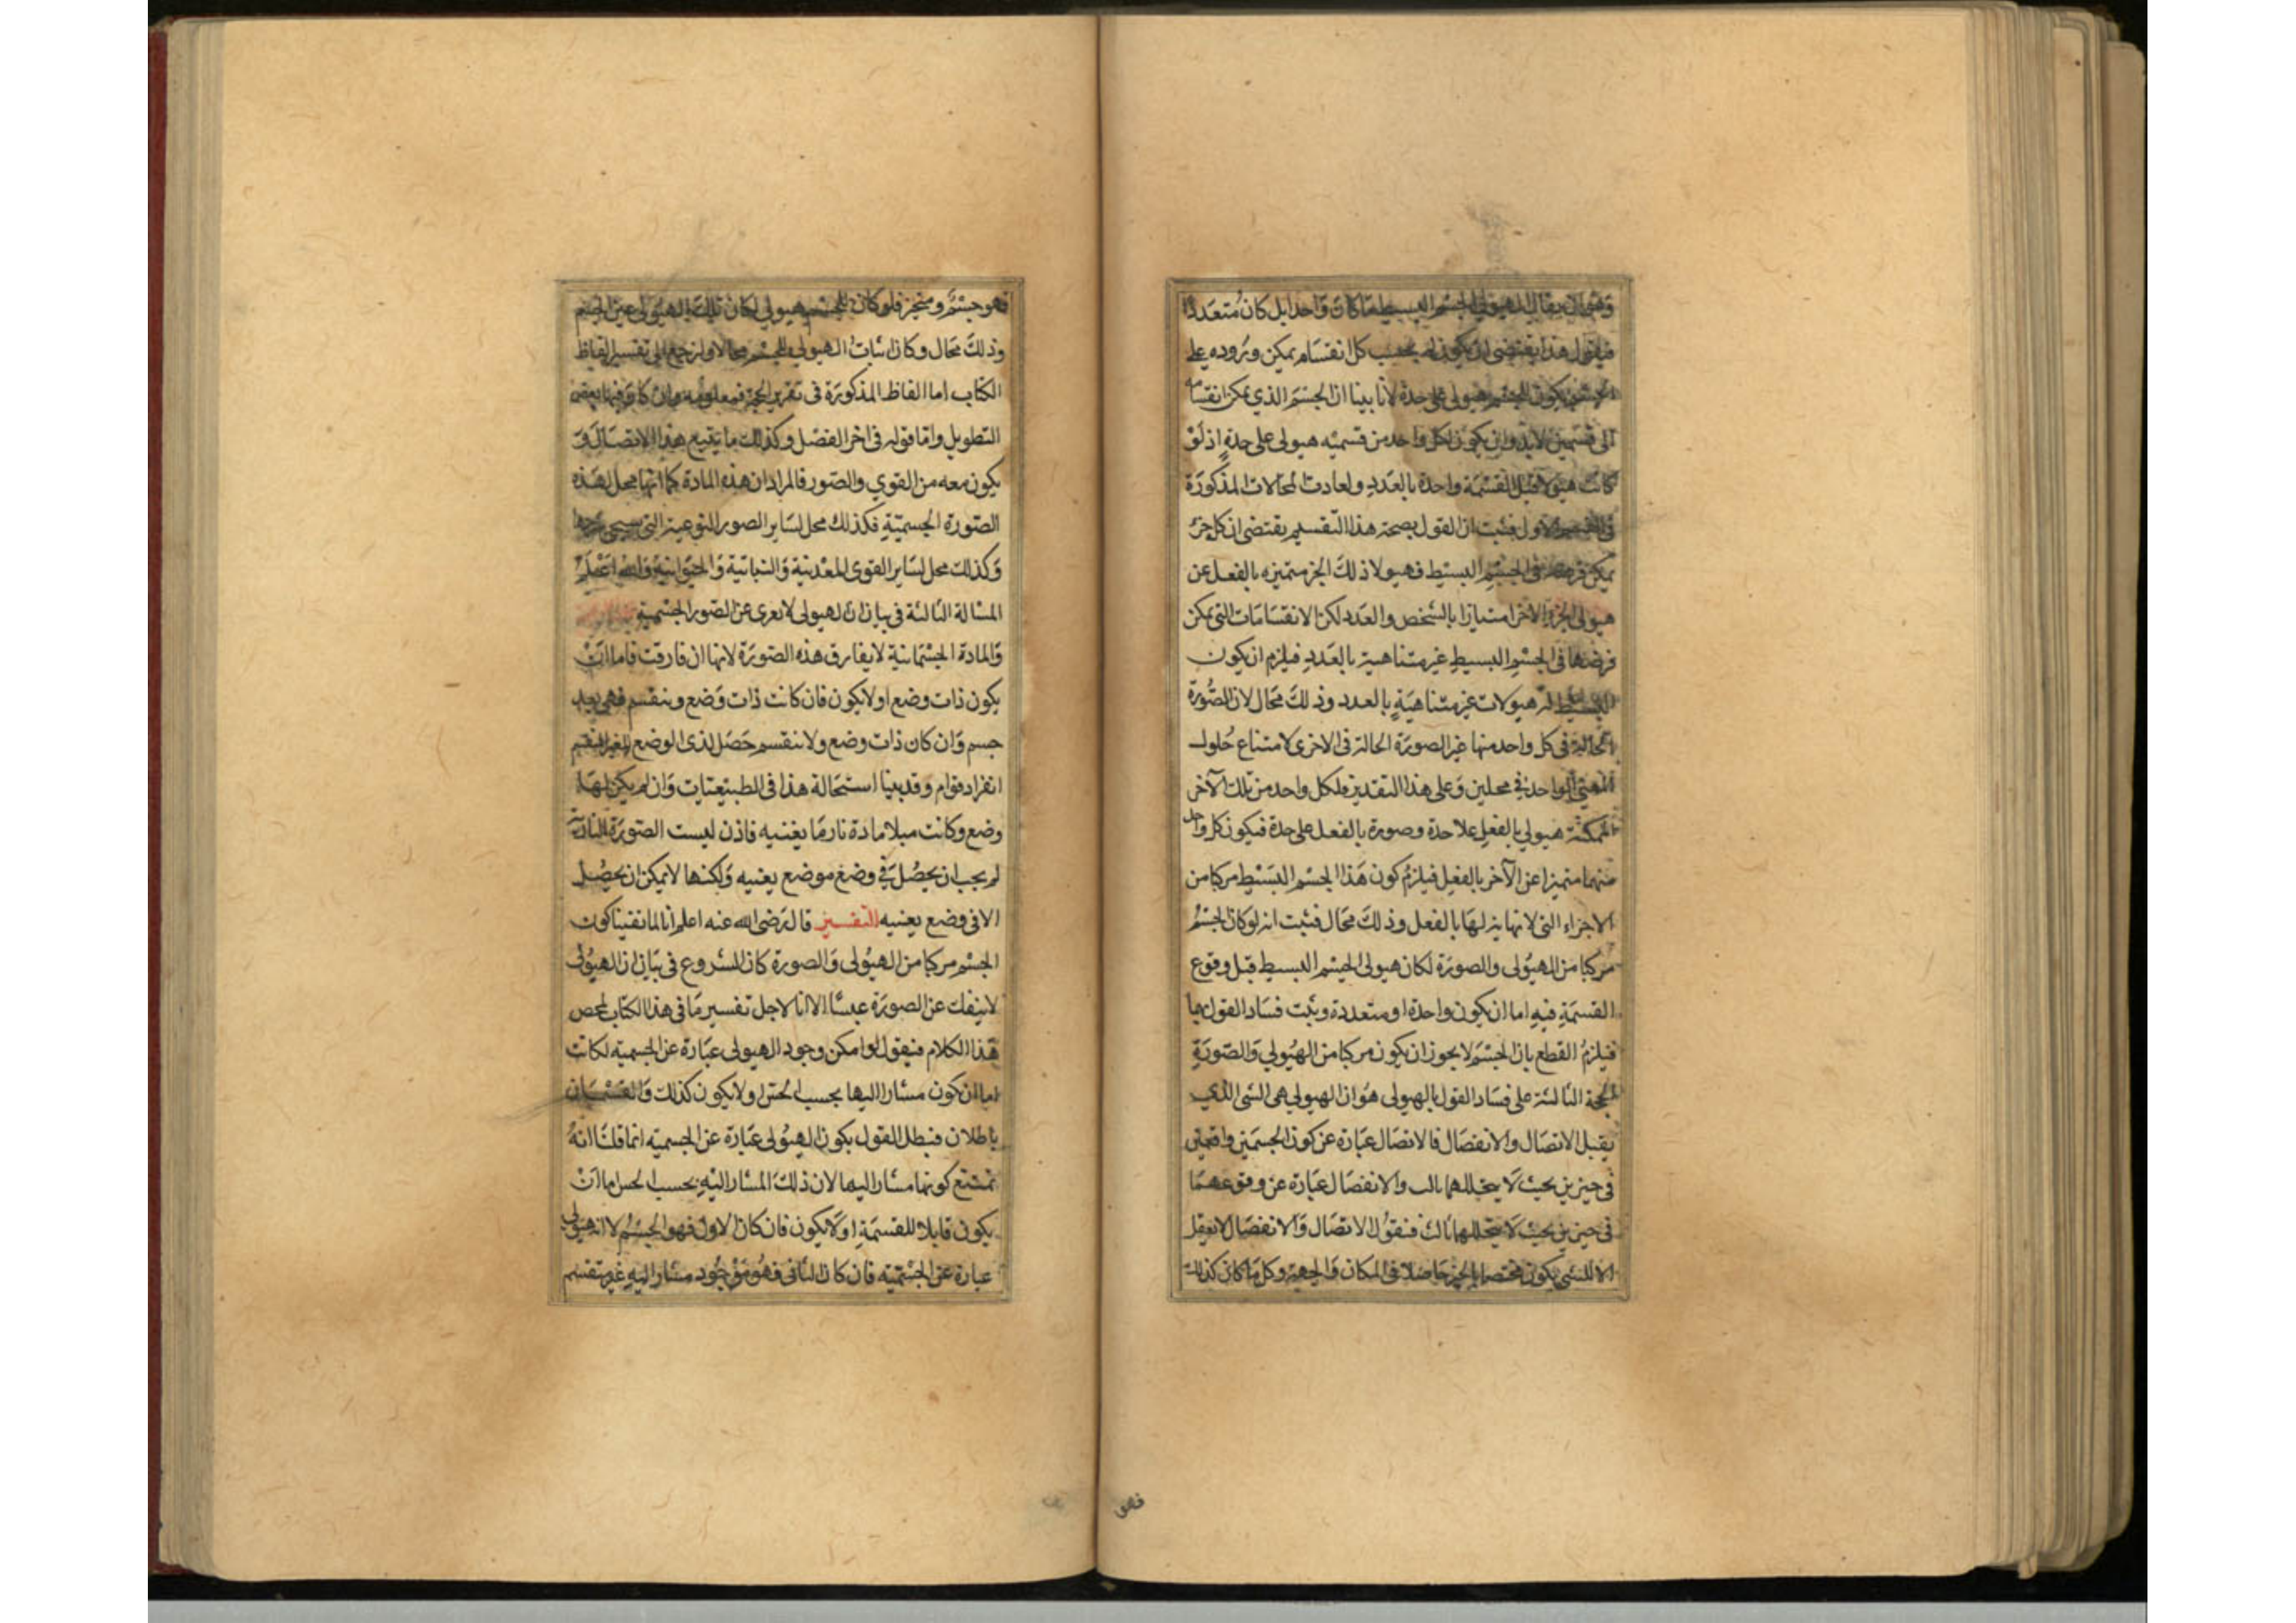 وهو ان يقال الهيولي الجسم البسيط ما كان واحدا بل كان متعددا
فيقول هذا يقتضى ان يكون له بحسب كل انقسام يمكن وروده على
الجسم يكون للجسم هيولى على حدة لأنا بينا ان الجسم الذي يمكن انقسامه
الى قسمين لابد وان يكون لكل واحد من قسميه هيولى على حدة اذ لو
كانت هيولاه قبل القسمة واحدة بالعدد ولعادت المحالات المذكورة
فى القسم الاول فثبت ان القول بصحة هذا التقسيم يقتضى ان كل جزء
يمكن فرضه فى الجسم البسيط فهيولا ذلك الجز متميزه بالفعل عن
هيولى الجزء الاخر امتيازا بالشخص والعدد لكن الانقسامات التي يمكن
فرضها فى الجسم البسيط غير متناهية بالعدد فيلزم ان يكون
البسيط له هيولات غير متناهية بالعدد وذلك محال لان الصورة
الحالة فى كل واحد منها غير الصورة الحالة فى الاخرى لامتناع حلول
الشئ الواحد في محلين وعلى هذا التقدير فلكل واحد من تلك الآخر
الممكنة هيولي بالفعل علاحدة وصورة بالفعل على حدة فيكون كل واحد
منهما متميزا عن الآخر بالفعل فيلزم كون هذا الجسم البسيط مركبا من
الاجزاء التى لا نهاية لها بالفعل وذلك محال فثبت انه لو كان الجسم
مركبا من الهيولى والصورة لكان هيولى الجسم البسيط قبل وقوع
القسمة فيه اما ان يكون واحدة او متعددة وثبت فساد القول بها
فيلزم القطع بان الجسم لا يجوز ان يكون مركبا من الهيولي والصورة
الحجة الثالثة على فساد القول بالهيولى هو ان الهيولي هى الشى الذي
يقبل الاتصال والانفصال فالاتصال عبارة عن كون الجسمين واقعين
فى حيزين بحيث لا يتخللهما ثالث والانفصال عبارة عن وقوعهما
فى حيزين بحيث لا يتخللهما ثالث فنقول الاتصال والانفصال لا يعقل
الا للشي يكون مختصا بالحيز حاصلا فى المكان والجهة وكل ما كان كذلك
فهو
فهو جسم ومتحيز فلو كان للجسم هيولي لكان تلك الهيولى عين الجسم
وذلك محال وكان اثبات الهيولي للجسم محالا ولنرجع الى تفسير الفاظ
الكتاب اما الفاظ المذكورة فى تقرير الحجة فمعلومة وان كان فيها بعض
التطويل واما قوله فى اخر الفصل وكذلك ما يتبع هذا الاتصال و
يكون معه من القوي والصور فالمراد ان هذه المادة كما انها محل لهذه
الصورة الجسمية فكذلك محل لساير الصور النوعية التى سيجئ شرحها
وكذلك محل لساير القوى المعدنية والنباتية والحيوانية والله اعلم
المسالة الثالثة فى بيان ان الهيولى لا تعرى عن الصور الجسمية
والمادة الجسمانية لا يفارق هذه الصورة لانها ان فارقت فاما ان
يكون ذات وضع او لا يكون فان كانت ذات وضع وينقسم فهي بعد
جسم وان كان ذات وضع ولا ينقسم حصل لذى الوضع الغير المنقسم
انفراد قوام وقد بينا استحالة هذا فى الطبيعيات وان لم يكن لها
وضع وكانت مبلا مادة نار ما يغنيه فاذن ليست الصورة النارية
لم يجب ان يحصل في وضع موضع يعنيه ولكنها لا يمكن ان يحصل
الا فى وضع يعنيه التفسير قال رضى الله عنه اعلم انا لما نقينا كون
الجسم مركبا من الهيولى والصورة كان الشروع فى بيان ان الهيولى
لا ينفك عن الصورة عبثا الا انا لاجل تفسير ما فى هذا الكتاب نلخص
هذا الكلام فنقول لو امكن وجود الهيولى عبارة عن الجسمية لكانت
اما ان يكون مشارا اليها بحسب الحس او لا يكون كذلك والقسمان
باطلان فبطل القول بكون الهيولى عبارة عن الجسميه انما قلنا انه
تمتنع كونها مشارا اليها لان ذلك المشار اليه بحسب الحس اما ان
يكون قابلا للقسمة او لا يكون فان كان الاول فهو الجسم لا انه هيولى
عبارة عن الجسمية فان كان الثانى فهو موجود مشار اليه غير منقسم